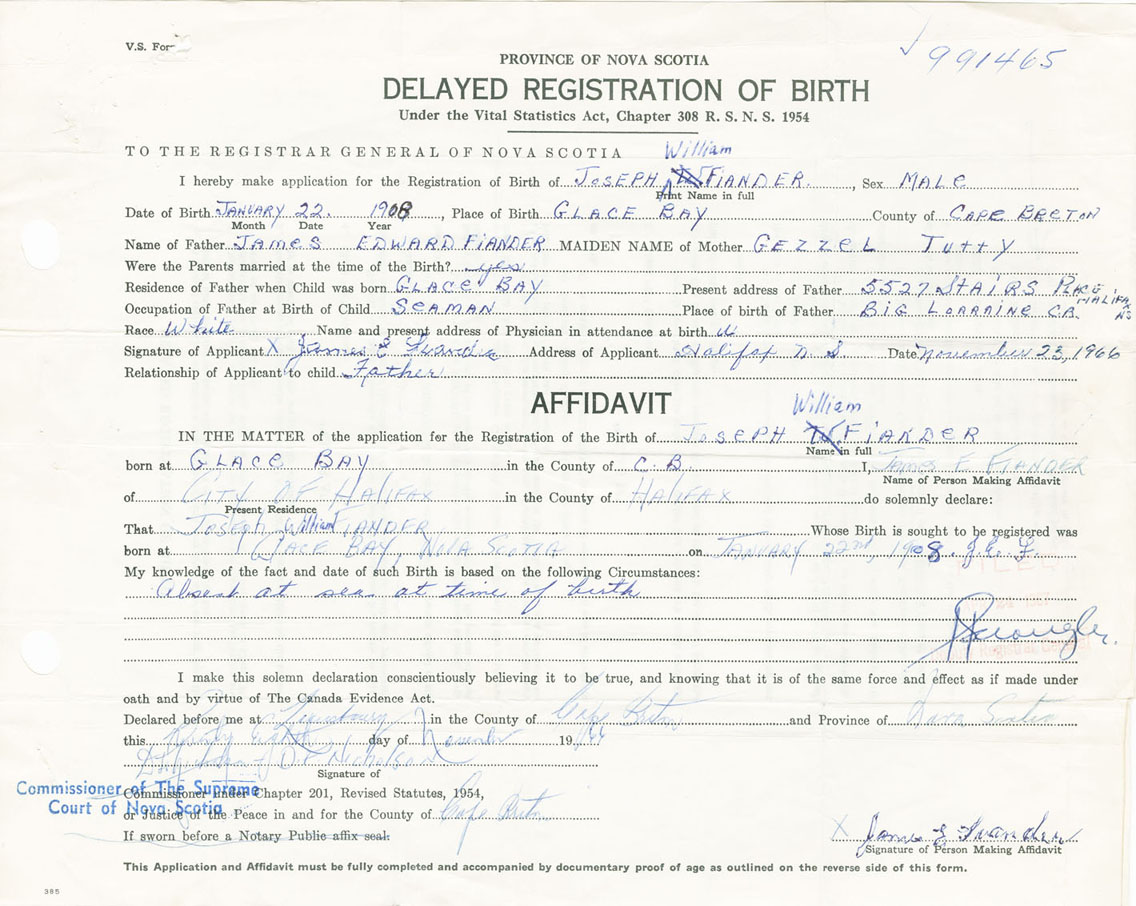 V.S. For
991465
PROVINCE OF NOVA SCOTIA
DELAYED REGISTRATION OF BIRTH
Under the Vital Statistics Act, Chapter 308 R. S. N. S. 1954
TO THE REGISTRAR GENERAL OF NOVA SCOTIA William
I hereby make application for the Registration of Birth of JOSEPH W FIANDER. , Sex MALE
Print Name in full
Date of Birth JANUARY 22. 1908 , Place of Birth GLACE BAY County of CAPE BRETON
Month Date Year
Name of Father JAMES EDWARD FIANDER MAIDEN NAME of Mother GEZZEL TUTTY
Were the Parents married at the time of the Birth? yes
Residence of Father when Child was born GLACE BAY Present address of Father 5527 STAIRS PLACE HALIFAX NS
Occupation of Father at Birth of Child SEAMAN Place of birth of Father BIG LORRAINE CB.
Race White Name and present address of Physician in attendance at birth
Signature of Applicant X James E Address of Applicant Halifax N S Date November 23, 1966
Relationship of Applicant to child Father
AFFIDAVIT
William
IN THE MATTER of the application for the Registration of the Birth of JOSEPH W FIANDER
Name in full
born at GLACE BAY in the County of C.B. I, JAMES E FIANDER
Name of Person Making Affidavit
of CITY OF HALIFAX in the County of HALIFAX do solemnly declare:
Present Residence
That JOSEPH William FIANDER Whose Birth is sought to be registered was
born at GLACE BAY, NOVA SCOTIA on JANUARY 22nd, 1908. J.E.F.
My knowledge of the fact and date of such Birth is based on the following Circumstances:
Absent at sea at time of birth
I make this solemn declaration conscientiously believing it to be true, and knowing that it is of the same force and effect as if made under
oath and by virtue of The Canada Evidence Act.
Declared before me at Louisbourg in the County of Cape Breton and Province of Nova Scotia
this Twenty eighth day of November 1966
D.P. Nicholson
Signature of
Commissioner of The Supreme
Court of Nova Scotia
Commissioner under Chapter 201, Revised Statutes, 1954,
or Justice of the Peace in and for the County of Cape Breton
If sworn before a Notary Public affix seal.
X James E
Signature of Person Making Affidavit
This Application and Affidavit must be fully completed and accompanied by documentary proof of age as outlined on the reverse side of this form.
385